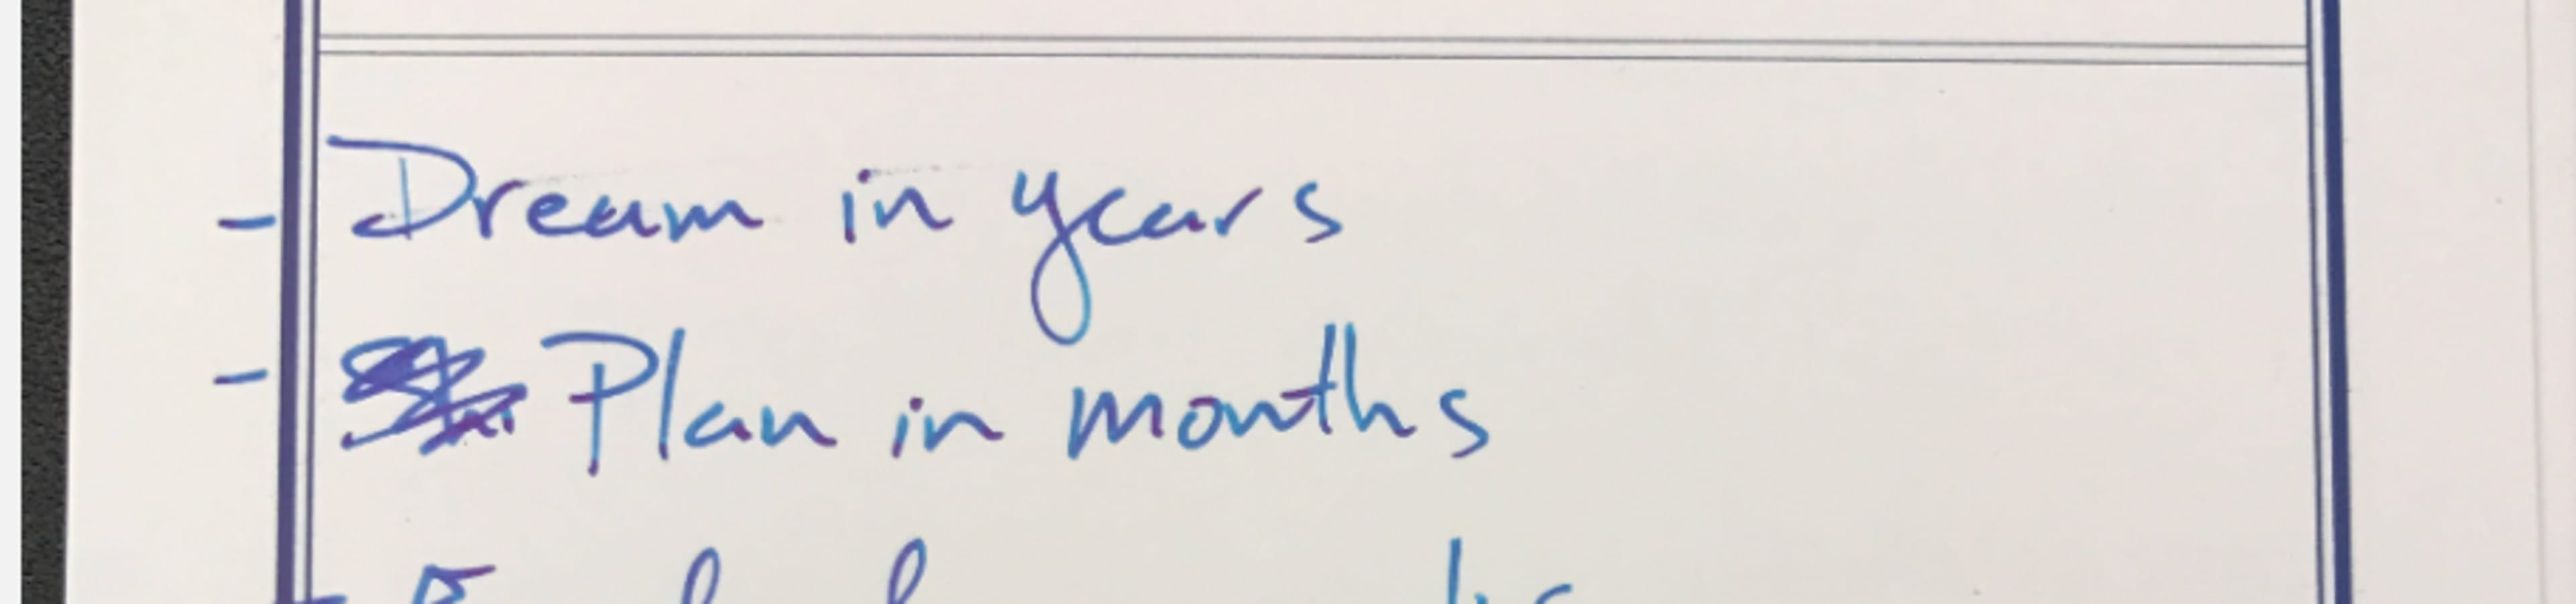 - Dream in years
- Plan in months